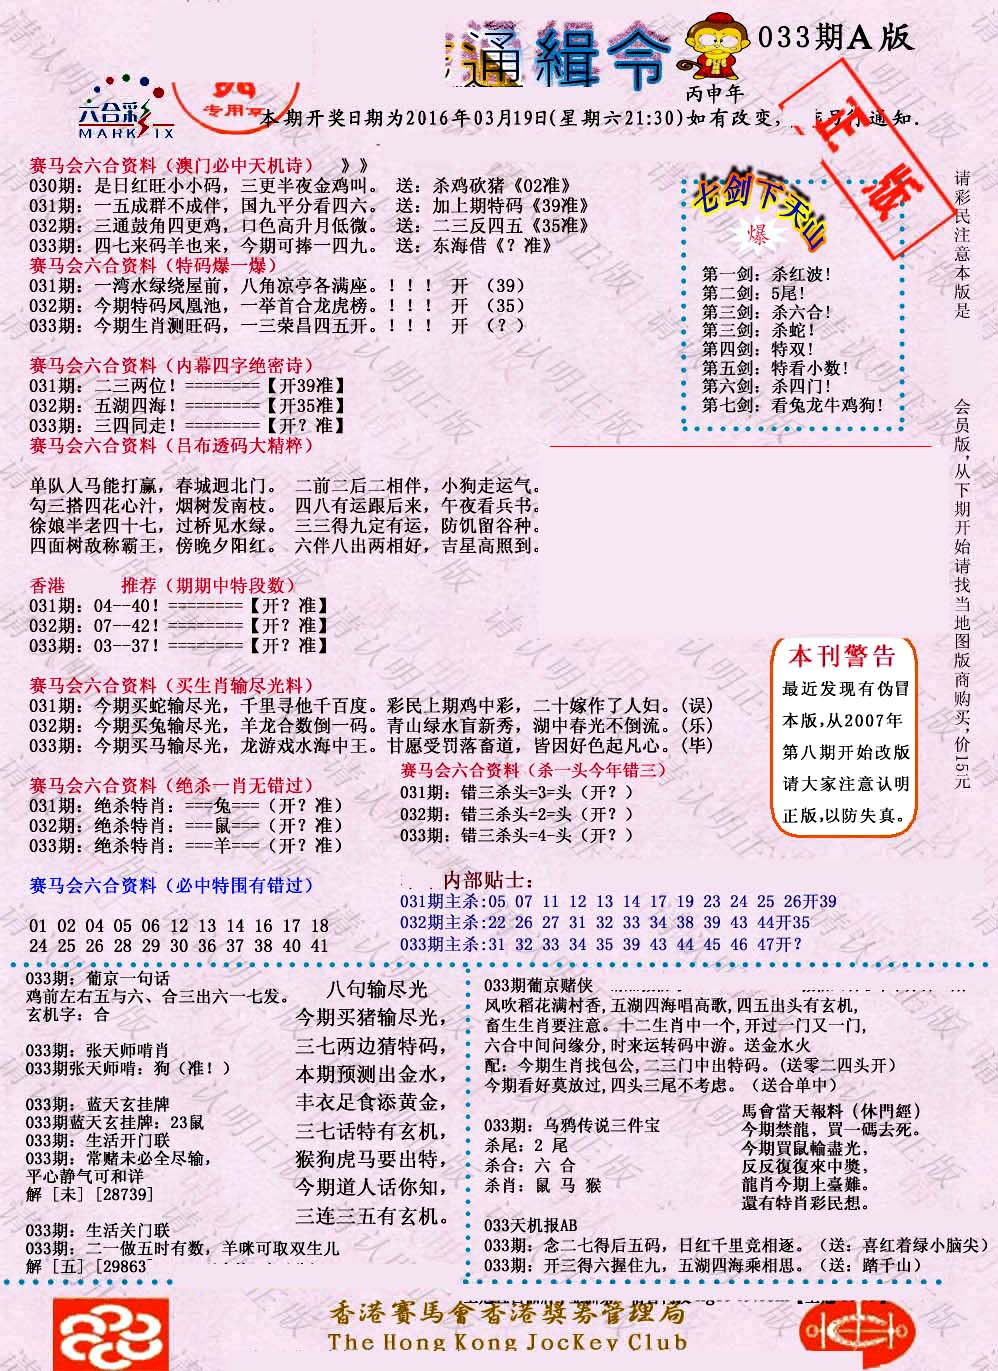 通缉令
033期A版
丙申年
六合彩
MARK SIX
专用章
本期开奖日期为2016年03月19日(星期六21:30)如有改变,
通知.
赛马会六合资料（澳门必中天机诗） 》》
030期: 是日红旺小小码，三更半夜金鸡叫。 送: 杀鸡砍猪《02准》
031期: 一五成群不成伴，国九平分看四六。 送: 加上期特码《39准》
032期: 三通鼓角四更鸡，口色高升月低微。 送: 二三反四五《35准》
033期: 四七来码羊也来，今期可捧一四九。 送: 东海借《? 准》
赛马会六合资料（特码爆一爆）
031期: 一湾水绿绕屋前，八角凉亭各满座。！！！ 开 （39）
032期: 今期特码凤凰池，一举首合龙虎榜。！！！ 开 （35）
033期: 今期生肖测旺码，一三荣昌四五开。！！！ 开 （? ）
赛马会六合资料（内幕四字绝密诗）
031期: 二三两位! ========【开39准】
032期: 五湖四海! ========【开35准】
033期: 三四同走! ========【开? 准】
赛马会六合资料（吕布透码大精粹）
单队人马能打赢，春城迥北门。 二前三后二相伴，小狗走运气。
勾三搭四花心汁，烟树发南枝。 四八有运跟后来，午夜看兵书。
徐娘半老四十七，过桥见水绿。 三三得九定有运，防饥留谷种。
四面树敌称霸王，傍晚夕阳红。 六伴八出两相好，吉星高照到。
七剑下天山
爆
第一剑: 杀红波!
第二剑: 5尾!
第三剑: 杀六合!
第三剑: 杀蛇!
第四剑: 特双!
第五剑: 特看小数!
第六剑: 杀四门!
第七剑: 看兔龙牛鸡狗!
请彩民注意本版是
会员版,从下期开始请找当地图版商购买,价15元
香港 推荐（期期中特段数）
031期: 04--40! ========【开? 准】
032期: 07--42! ========【开? 准】
033期: 03--37! ========【开? 准】
赛马会六合资料（买生肖输尽光料）
031期: 今期买蛇输尽光，千里寻他千百度。彩民上期鸡中彩，二十嫁作了人妇。(误)
032期: 今期买兔输尽光，羊龙合数倒一码。青山绿水盲新秀，湖中春光不倒流。(乐)
033期: 今期买马输尽光，龙游戏水海中王。甘愿受罚落畜道，皆因好色起凡心。(毕)
本刊警告
最近发现有伪冒
本版,从2007年
第八期开始改版
请大家注意认明
正版,以防失真。
赛马会六合资料（绝杀一肖无错过）
031期: 绝杀特肖: ===兔===（开? 准）
032期: 绝杀特肖: ===鼠===（开? 准）
033期: 绝杀特肖: ===羊===（开? 准）
赛马会六合资料（杀一头今年错三）
031期: 错三杀头=3=头（开? ）
032期: 错三杀头=2=头（开? ）
033期: 错三杀头=4-头（开? ）
赛马会六合资料（必中特围有错过）
01 02 04 05 06 12 13 14 16 17 18
24 25 26 28 29 30 36 37 38 40 41
内部贴士:
031期主杀:05 07 11 12 13 14 17 19 23 24 25 26开39
032期主杀:22 26 27 31 32 33 34 38 39 43 44开35
033期主杀:31 32 33 34 35 39 43 44 45 46 47开?
033期: 葡京一句话
鸡前左右五与六、合三出六一七发。
玄机字: 合
033期: 张天师啃肖
033期张天师啃: 狗（准! ）
033期: 蓝天玄挂牌
033期蓝天玄挂牌: 23鼠
033期: 生活开门联
033期: 常赌未必全尽输,
平心静气可和详
解 [未] [28739]
033期: 生活关门联
033期: 二一做五时有数, 羊咪可取双生儿
解 [五] [29863
八句输尽光
今期买猪输尽光,
三七两边猜特码,
本期预测出金水,
丰衣足食添黄金,
三七话特有玄机,
猴狗虎马要出特,
今期道人话你知,
三连三五有玄机。
033期葡京赌侠
风吹稻花满村香, 五湖四海唱高歌, 四五出头有玄机,
畜生生肖要注意。十二生肖中一个, 开过一门又一门,
六合中间问缘分, 时来运转码中游。送金水火
配: 今期生肖找包公, 二三门中出特码。(送零二四头开)
今期看好莫放过, 四头三尾不考虑。（送合单中）
033期: 乌鸦传说三件宝
杀尾: 2 尾
杀合: 六 合
杀肖: 鼠 马 猴
馬會當天報料（休門經）
今期禁龍, 買一碼去死。
今期買鼠輸盡光,
反反復復來中獎,
龍肖今期上臺難。
還有特肖彩民想。
033天机报AB
033期: 念二七得后五码, 日红千里竞相逐。（送: 喜红着绿小脑尖）
033期: 开三得六握住九, 五湖四海乘相思。（送: 踏千山）
香港賽馬會香港獎券管理局
The Hong Kong Jockey Club